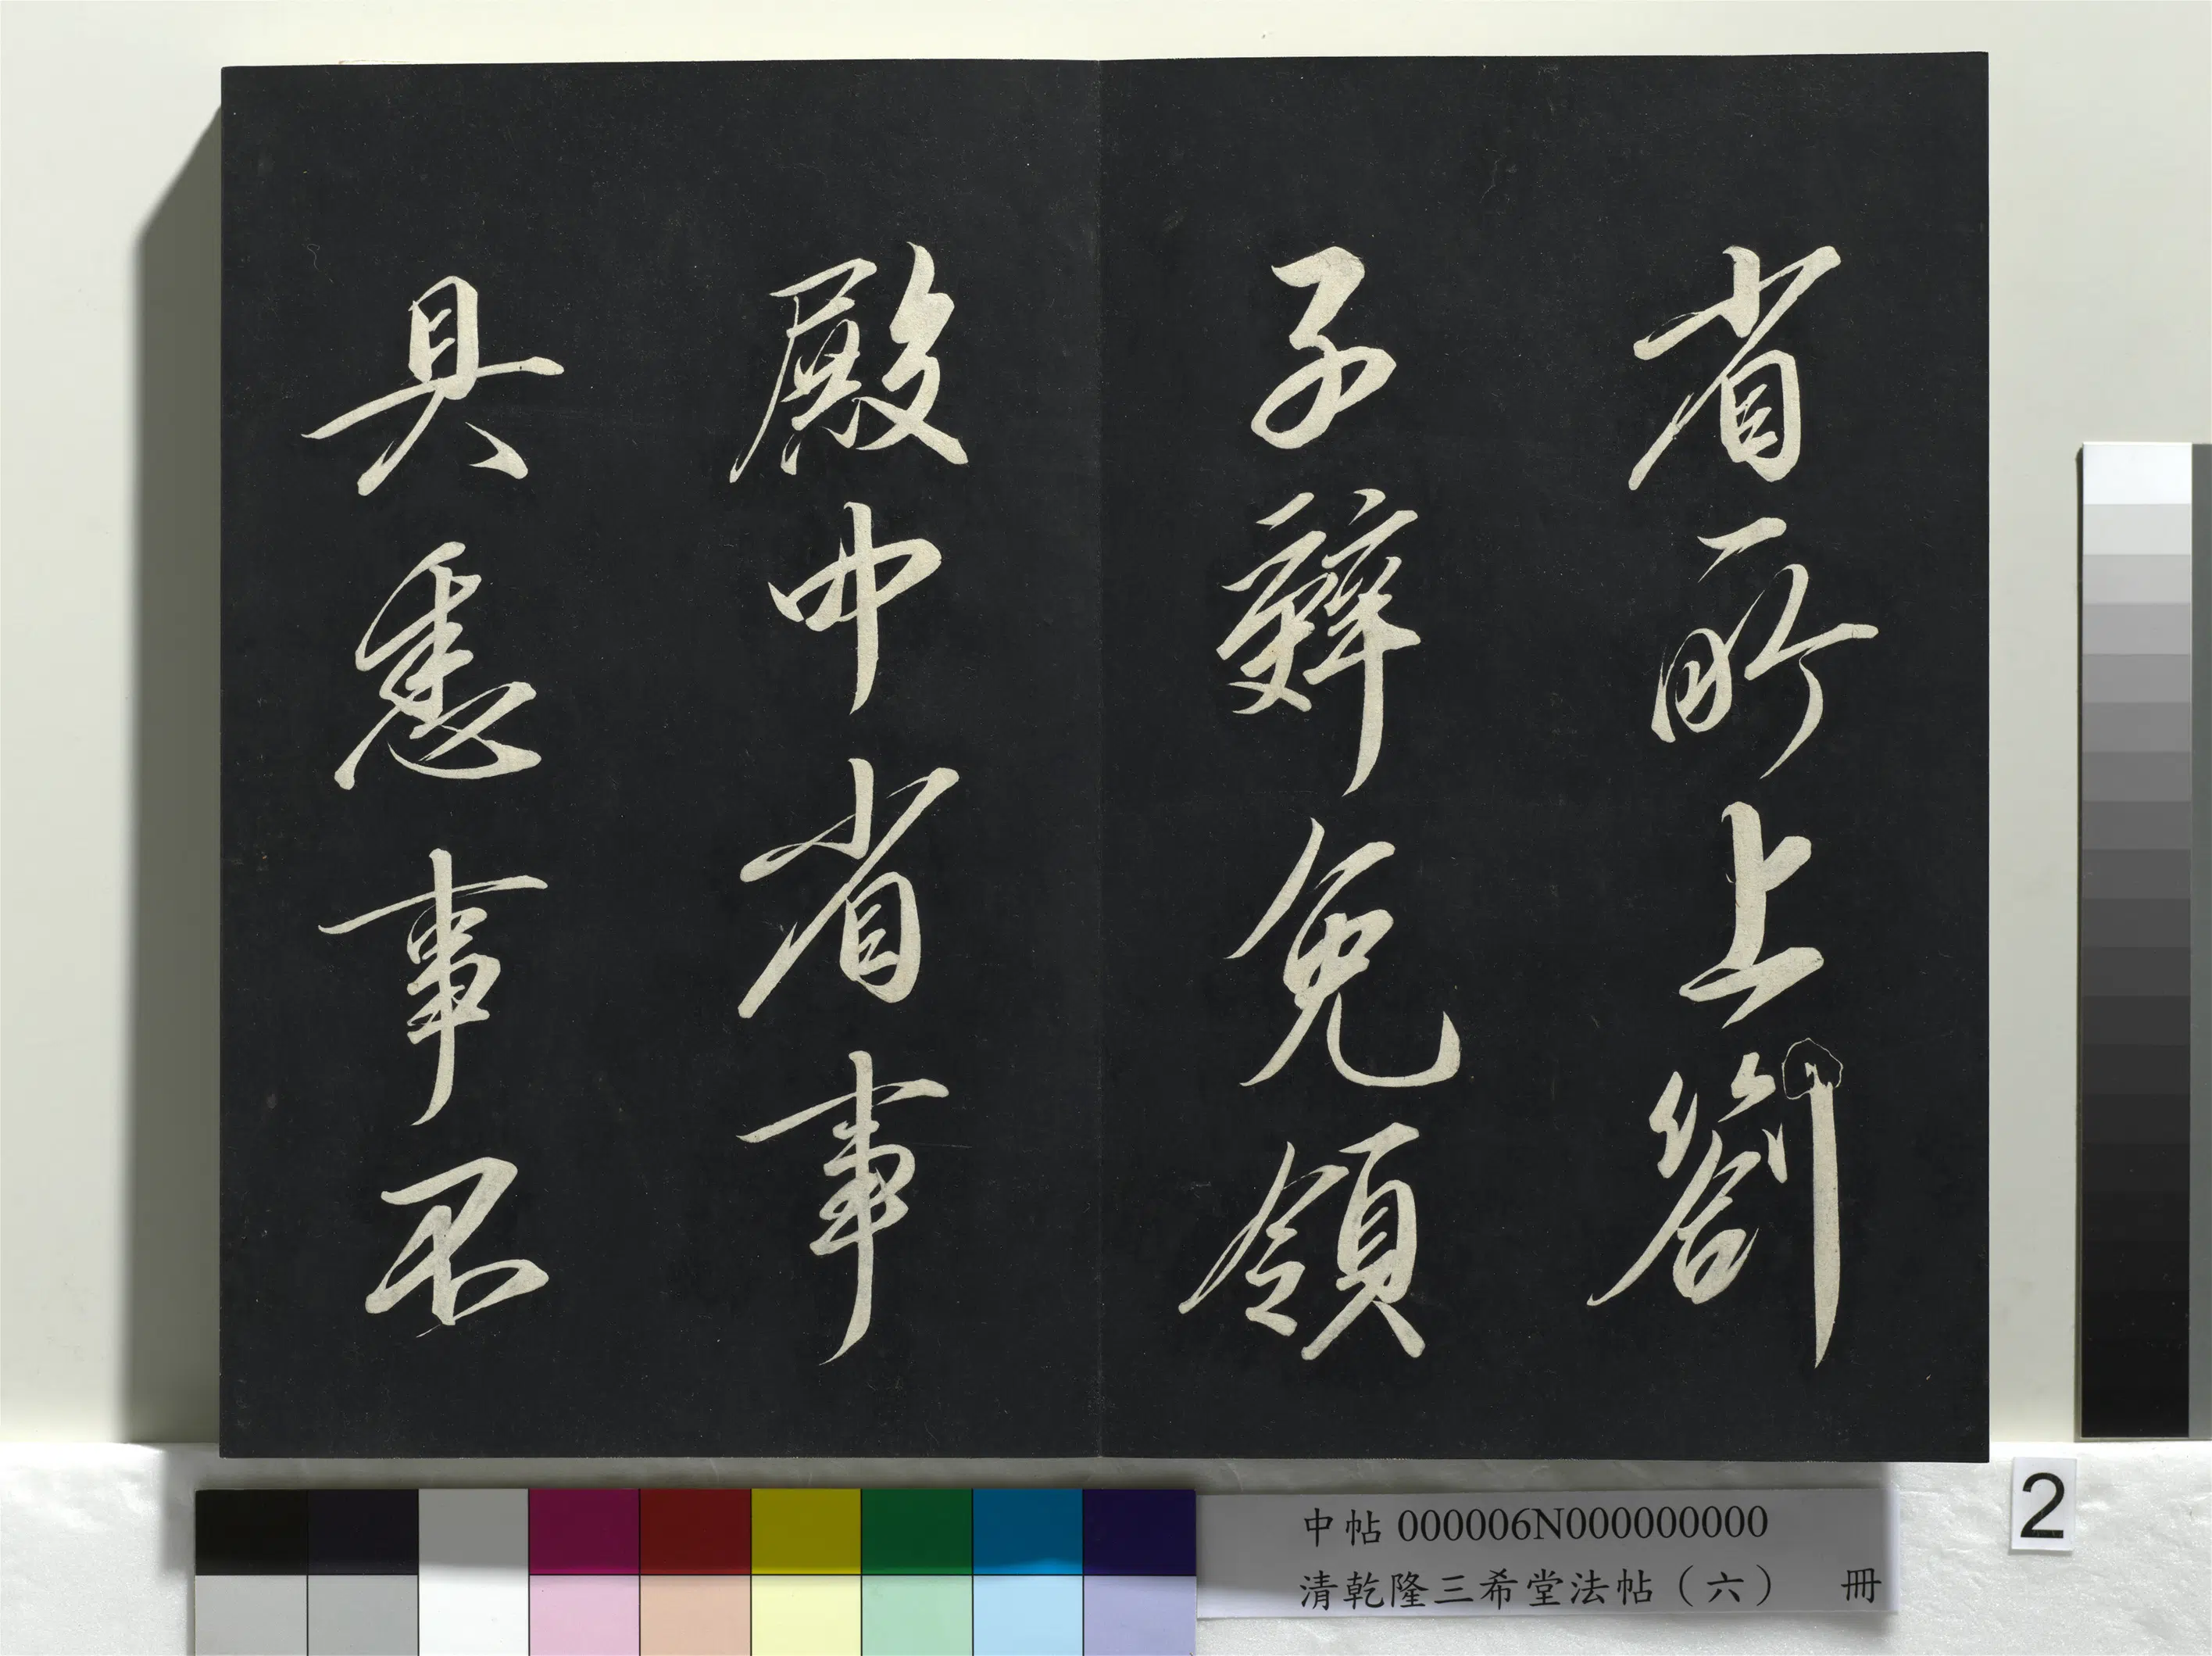 省所上劄
子辤免領
殿中省事
具悉事不
中帖 000006N000000000
清乾隆三希堂法帖（六） 冊
2